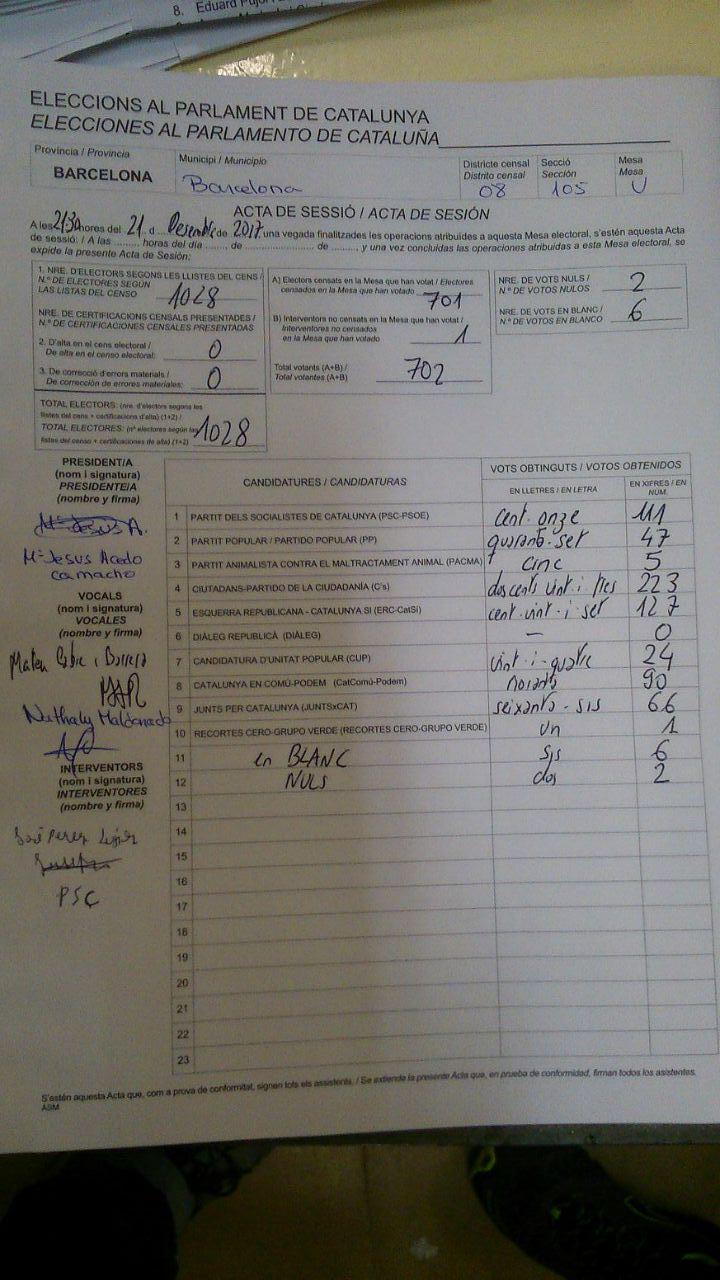 8. Eduard Pujol
ELECCIONS AL PARLAMENT DE CATALUNYA
ELECCIONES AL PARLAMENTO DE CATALUÑA
Provincia / Provincia
BARCELONA
Municipi / Municipio
Barcelona
Districte censal
Distrito censal
08
Secció
Sección
105
Mesa
Mesa
U
ACTA DE SESSIÓ / ACTA DE SESIÓN
A les 21:30 hores del 21 d Desembre de 2017 una vegada finalitzades les operacions atribuïdes a aquesta Mesa electoral, s'estén aquesta Acta
de sessió: / A las ......... horas del día ....... de .................. de ........, y una vez concluidas las operaciones atribuidas a esta Mesa electoral, se
expide la presente Acta de Sesión:
1. NRE. D'ELECTORS SEGONS LES LLISTES DEL CENS /
N.º DE ELECTORES SEGÚN
LAS LISTAS DEL CENSO
1028
NRE. DE CERTIFICACIONS CENSALS PRESENTADES /
N.º DE CERTIFICACIONES CENSALES PRESENTADAS
2. D'alta en el cens electoral /
De alta en el censo electoral:
0
3. De correcció d'errors materials /
De corrección de errores materiales:
0
TOTAL ELECTORS: (nre. d'electors segons les
llistes del cens + certificacions d'alta) (1+2) /
TOTAL ELECTORES: (nº electores según las
listas del censo + certificaciones de alta) (1+2)
1028
A) Electors censats en la Mesa que han votat / Electores
censados en la Mesa que han votado
701
B) Interventors no censats en la Mesa que han votat /
Interventores no censados
en la Mesa que han votado
1
Total votants (A+B) /
Total votantes (A+B)
702
NRE. DE VOTS NULS /
N.º DE VOTOS NULOS
2
NRE. DE VOTS EN BLANC /
N.º DE VOTOS EN BLANCO
6
PRESIDENT/A
(nom i signatura)
PRESIDENTE/A
(nombre y firma)
Mª Jesus A.
Mª Jesus Acedo
Camacho
VOCALS
(nom i signatura)
VOCALES
(nombre y firma)
Nathaly Maldonado
INTERVENTORS
(nom i signatura)
INTERVENTORES
(nombre y firma)
PSC
CANDIDATURES / CANDIDATURAS
VOTS OBTINGUTS / VOTOS OBTENIDOS
EN LLETRES / EN LETRA
EN XIFRES / EN NUM.
1 PARTIT DELS SOCIALISTES DE CATALUNYA (PSC-PSOE) cent onze 111
2 PARTIT POPULAR / PARTIDO POPULAR (PP) quaranta-set 47
3 PARTIT ANIMALISTA CONTRA EL MALTRACTAMENT ANIMAL (PACMA) cinc 5
4 CIUTADANS-PARTIDO DE LA CIUDADANÍA (C's) doscents vint i tres 223
5 ESQUERRA REPUBLICANA - CATALUNYA SI (ERC-CatSí) cent-vint-i-set 127
6 DIÀLEG REPUBLICÀ (DIÀLEG) — 0
7 CANDIDATURA D'UNITAT POPULAR (CUP) vint-i-quatre 24
8 CATALUNYA EN COMÚ-PODEM (CatComú-Podem) noranta 90
9 JUNTS PER CATALUNYA (JUNTSxCAT) seixanta-sis 66
10 RECORTES CERO-GRUPO VERDE (RECORTES CERO-GRUPO VERDE) Un 1
11 en BLANC Sis 6
12 NULS dos 2
13
14
15
16
17
18
19
20
21
22
23
S'estén aquesta Acta que, com a prova de conformitat, signen tots els assistents. / Se extiende la presente Acta que, en prueba de conformidad, firman todos los asistentes.
ASM